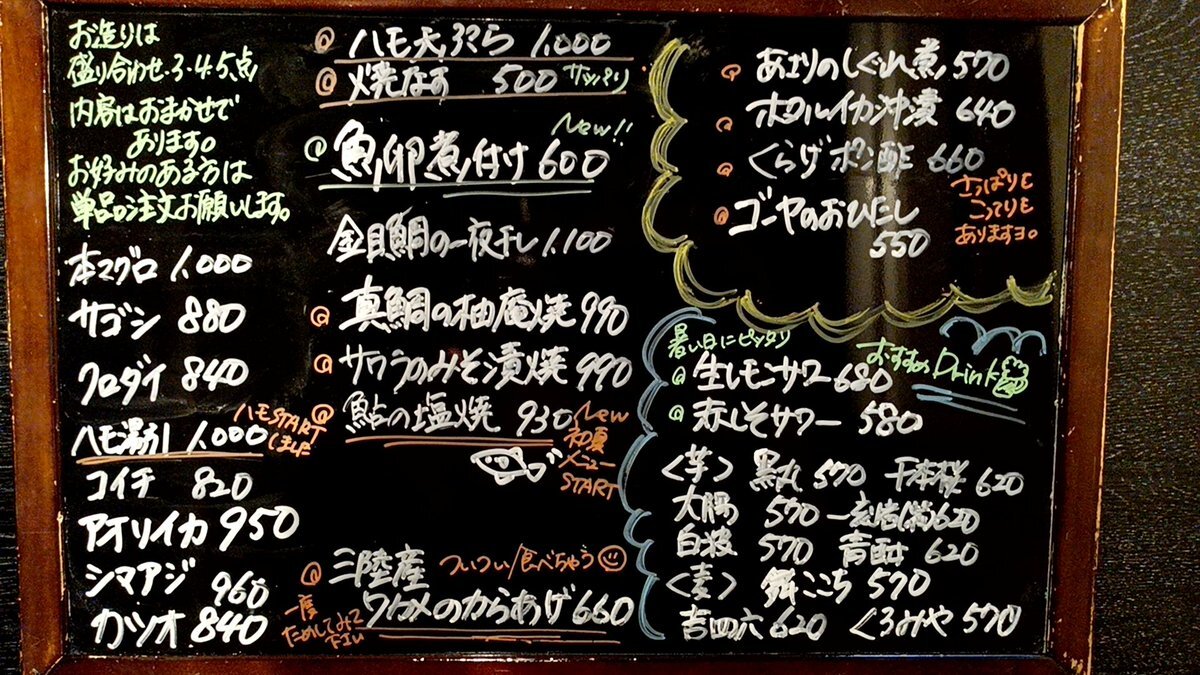 お造りは
盛り合わせ・3・4・5点
内容はおまかせで
あります。
お好みのある方は
単品の注文お願いします。
本マグロ 1,000
サゴシ 880
クロダイ 840
ハモ湯引 1,000
ハモSTART
しました
コイチ 820
アオリイカ 950
シマアジ 960
カツオ 840
ハモ天ぷら 1,000
焼なす 500 サッパリ
New!!
魚卵煮付け 600
金目鯛の一夜干し 1,100
真鯛の柚庵焼 990
サワラのみそ漬焼 990
鮎の塩焼 930
New
初夏
メニュー
START
三陸産 ついつい食べちゃう
ワカメのからあげ 660
一度
ためしてみて
下さい
あさりのしぐれ煮 570
ホタルイカ沖漬 640
くらげポン酢 660
ゴーヤのおひたし
550
さっぱりも
こってりも
ありますヨ。
暑い日にピッタリ
おすすめ Drink
生レモンサワー 680
赤しそサワー 580
<芋> 黒丸 570 千本桜 620
大陽 570 一刻者(芋) 620
白波 570 青酎 620
<麦> 舞ここち 570
吉四六 620 くろみや 570